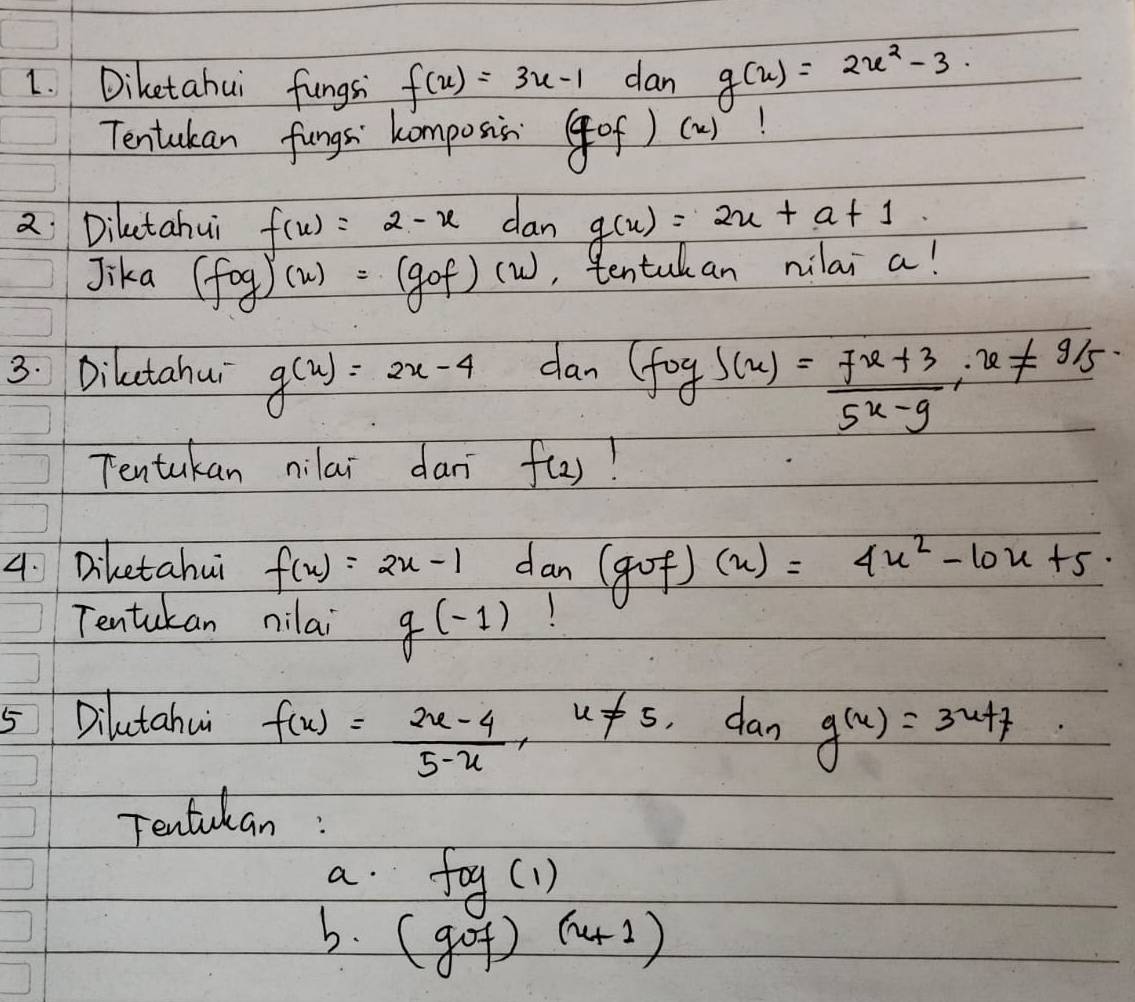 1. Diketahui fungsi f(x) = 3x-1 dan g(x) = 2x² - 3.
Tentukan fungsi komposisi (gof) (x) !
2. Diketahui f(x) = 2 - x dan g(x) = 2x + a + 1.
Jika (fog)(x) = (gof)(x), tentukan nilai a!
3. Diketahui g(x) = 2x - 4 dan (fog)(x) = (7x + 3)/(5x - 9), x ≠ 9/5.
Tentukan nilai dari f(2) !
4. Diketahui f(x) = 2x - 1 dan (gof) (x) = 4x² - 10x + 5.
Tentukan nilai g(-1) !
5 Diketahui f(x) = (2x - 4)/(5 - x), x ≠ 5, dan g(x) = 3x+7.
Tentukan :
a. fog (1)
b. (gof) (x+1)